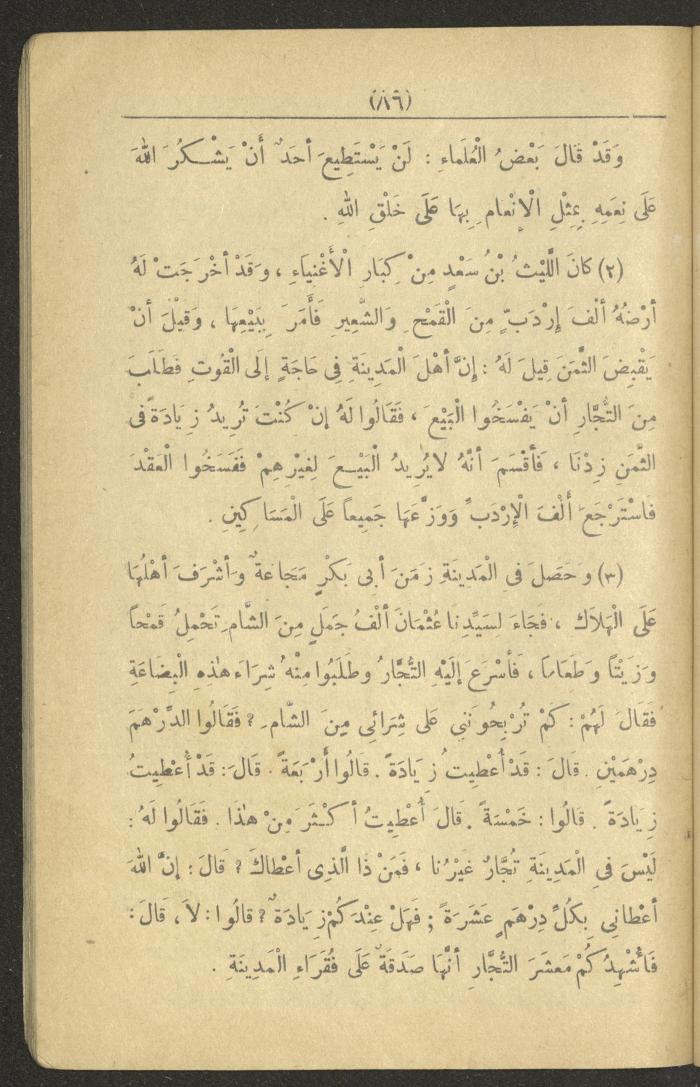 (٨٦)
وَقَدْ قَالَ بَعْضُ الْعُلَمَاءِ : لَنْ يَسْتَطِيعَ أَحَدٌ أَنْ يَشْكُرَ اللهَ
عَلَى نِعَمِهِ بِمِثْلِ الْإِنْعَامِ بِهَا عَلَى خَلْقِ اللهِ .
(٢) كَانَ اللَّيْثُ بْنُ سَعْدٍ مِنْ كِبَارِ الْأَغْنِيَاءِ ، وَقَدْ أَخْرَجَتْ لَهُ
أَرْضُهُ أَلْفَ إِرْدَبٍّ مِنَ الْقَمْحِ وَالشَّعِيرِ فَأَمَرَ بِبَيْعِهَا ، وَقَبْلَ أَنْ
يَقْبِضَ الثَّمَنَ قِيلَ لَهُ : إِنَّ أَهْلَ الْمَدِينَةِ فِى حَاجَةٍ إِلَى الْقُوتِ فَطَلَبَ
مِنَ التُّجَّارِ أَنْ يَفْسَخُوا الْبَيْعَ ، فَقَالُوا لَهُ إِنْ كُنْتَ تُرِيدُ زِيَادَةً فى
الثَّمَنِ زِدْنَا ، فَأَقْسَمَ أَنَّهُ لَا يُرِيدُ الْبَيْعَ لِغَيْرِهِمْ فَفَسَخُوا الْعَقْدَ
فَاسْتَرْجَعَ أَلْفَ الْإِرْدَبِّ وَوَزَّعَهَا جَمِيعاً عَلَى الْمَسَاكِينِ .
(٣) وَحَصَلَ فِى الْمَدِينَةِ زَمَنَ أَبِى بَكْرٍ مَجَاعَةٌ وَأَشْرَفَ أَهْلُهَا
عَلَى الْهَلَاكِ ، فَجَاءَ لِسَيِّدِنَا عُثْمَانَ أَلْفُ جَمَلٍ مِنَ الشَّامِ تَحْمِلُ قَمْحاً
وَزَيْتاً وَطَعَاماً ، فَأَسْرَعَ إِلَيْهِ التُّجَّارُ وَطَلَبُوا مِنْهُ شِرَاءَ هٰذِهِ الْبِضَاعَةِ
فَقَالَ لَهُمْ : كَمْ تُرْبِحُونَنِى عَلَى شِرَائِى مِنَ الشَّامِ ؟ فَقَالُوا الدِّرْهَمَ
دِرْهَمَيْنِ . قَالَ : قَدْ أُعْطِيتُ زِيَادَةً . قَالُوا أَرْبَعَةً . قَالَ : قَدْ أُعْطِيتُ
زِيَادَةً . قَالُوا : خَمْسَةً . قَالَ أُعْطِيتُ أَكْثَرَ مِنْ هٰذَا . فَقَالُوا لَهُ :
لَيْسَ فِى الْمَدِينَةِ تُجَّارٌ غَيْرُنَا ، فَمَنْ ذَا الَّذِى أَعْطَاكَ ؟ قَالَ : إِنَّ اللهَ
أَعْطَانِى بِكُلِّ دِرْهَمٍ عَشَرَةً ; فَهَلْ عِنْدَكُمْ زِيَادَةٌ ؟ قَالُوا : لَا ، قَالَ :
فَأُشْهِدُكُمْ مَعْشَرَ التُّجَّارِ أَنَّهَا صَدَقَةٌ عَلَى فُقَرَاءِ الْمَدِينَةِ .